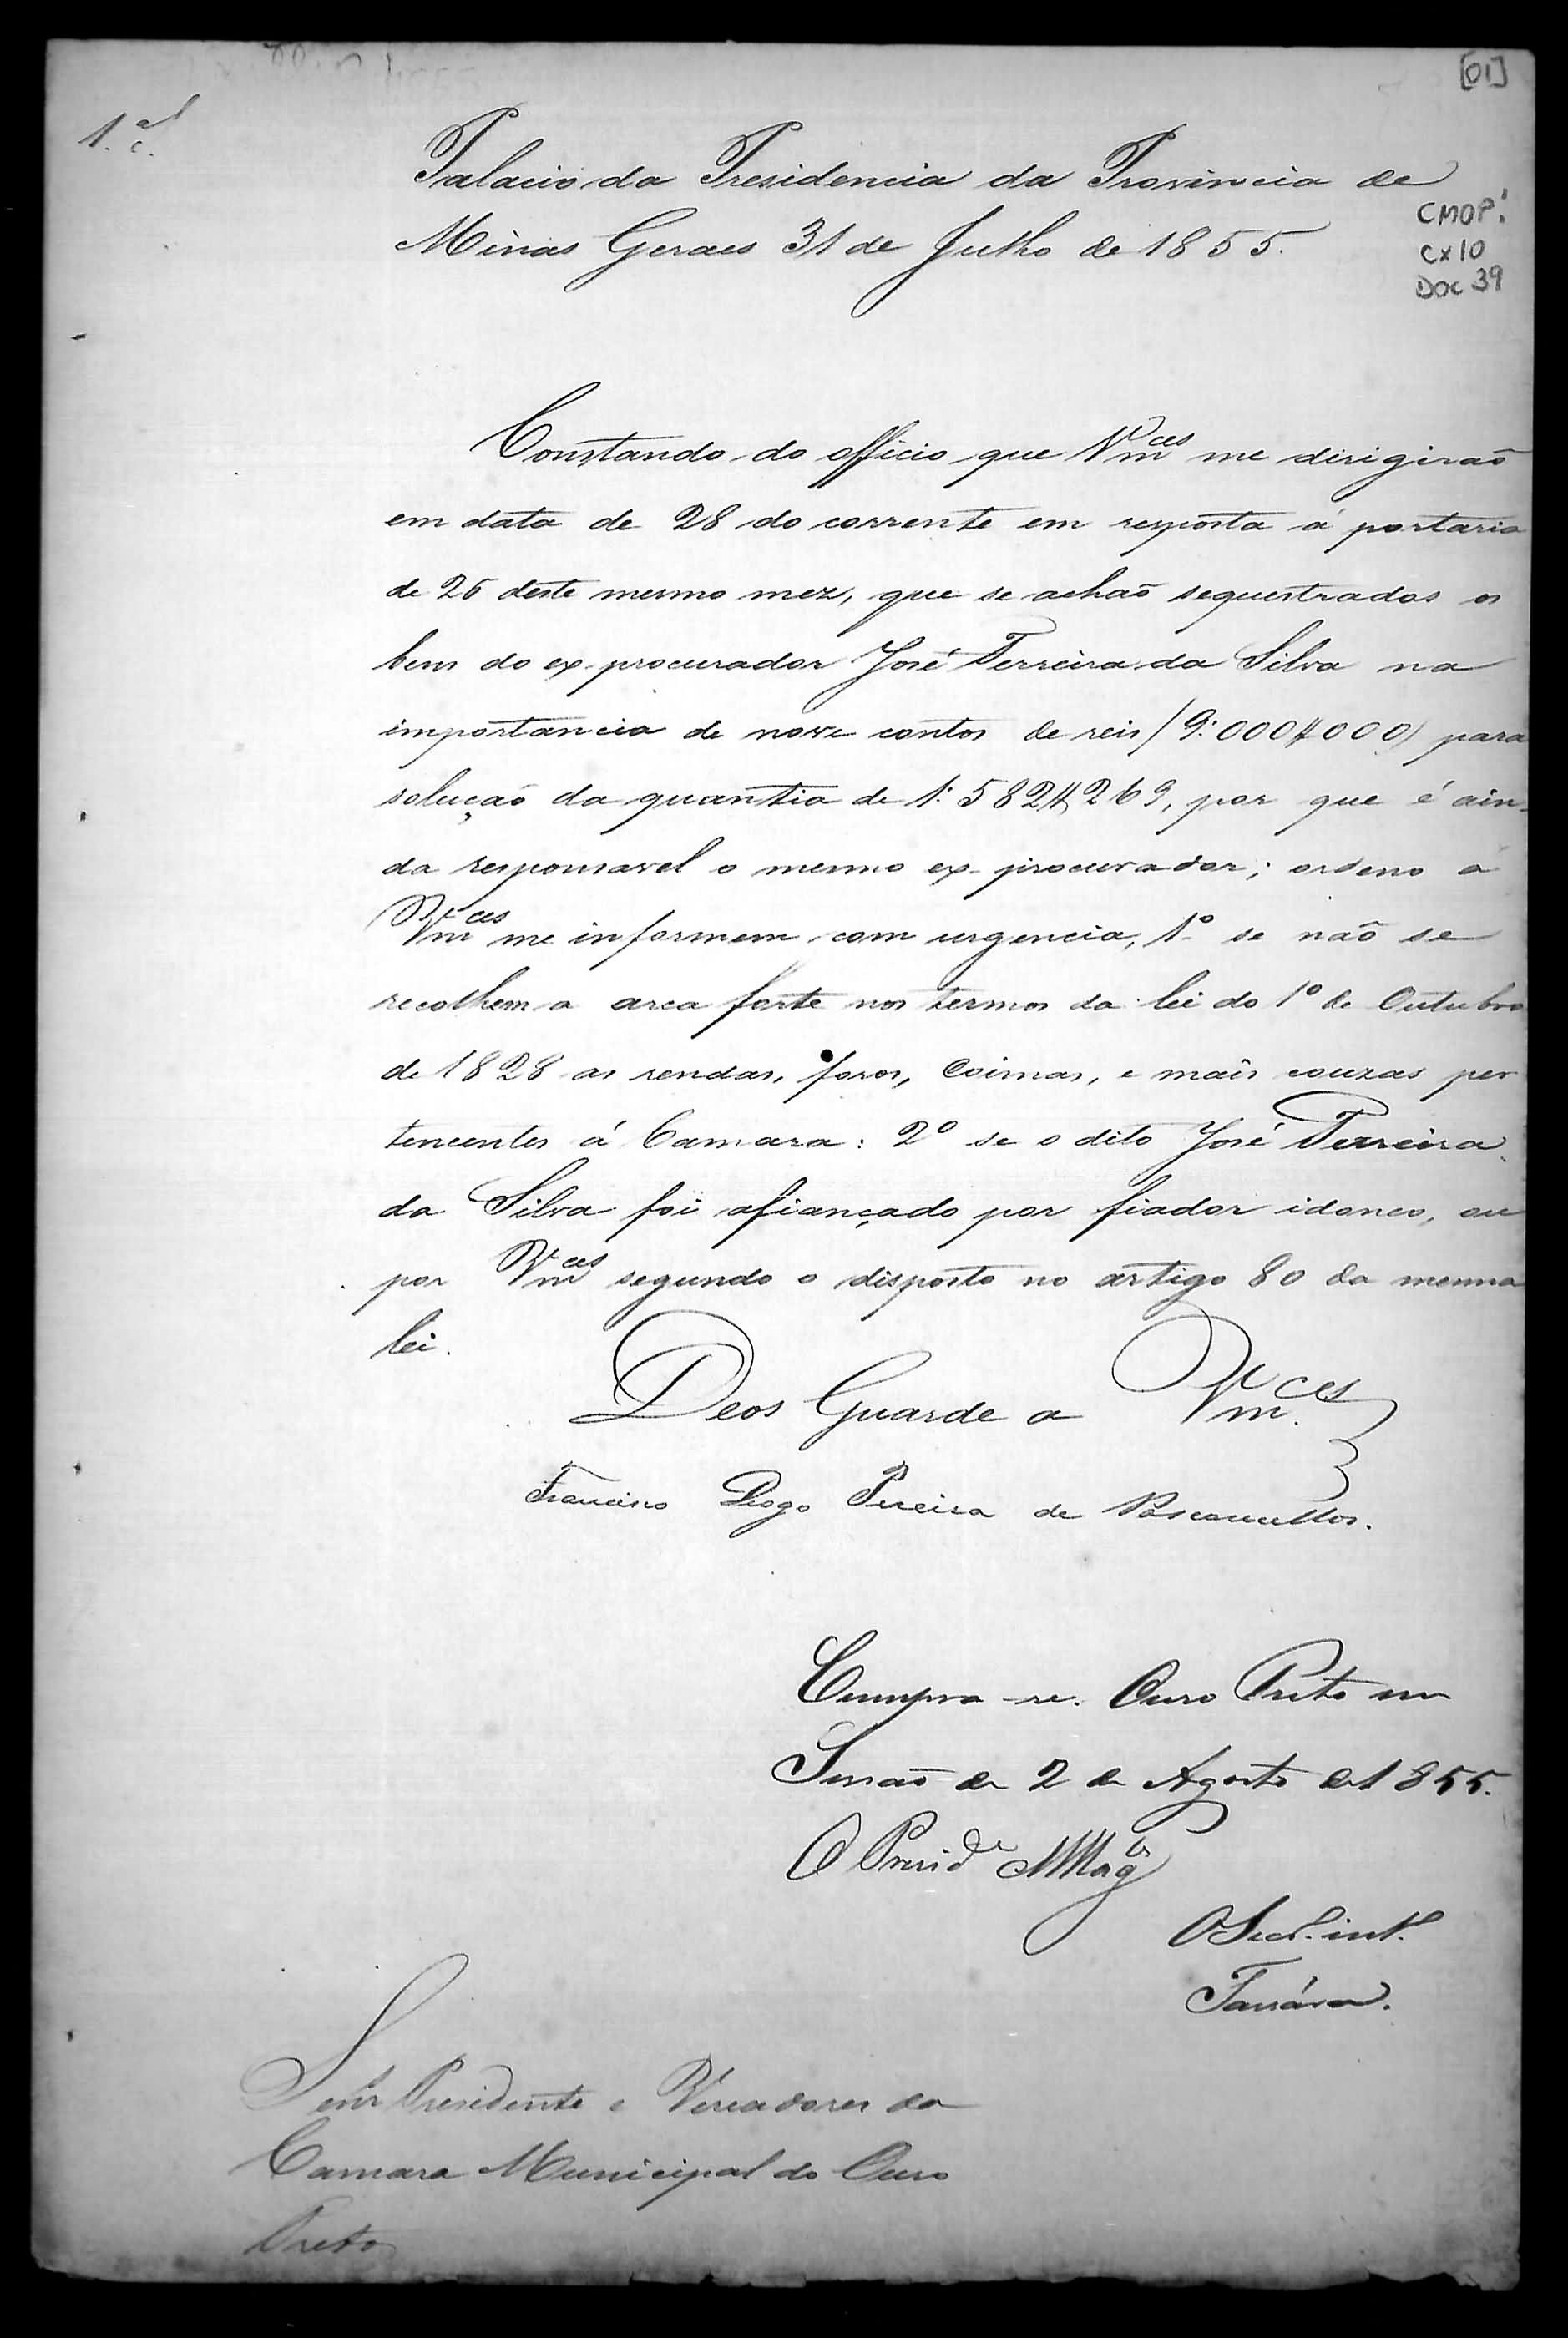 [01]
1.ª c.
Palacio da Presidencia da Provincia de
Minas Geraes 31 de Julho de 1855.
CMOP
Cx 10
DOC 39
Constando do officio que Vm.ces me dirigiraõ
em data de 28 do corrente em resposta á portaria
de 26 deste mesmo mez, que se achaõ sequestrados os
bens do ex-procurador José Ferreira da Silva na
importancia de nove contos de reis (9:000$000) para
soluçaõ da quantia de 1:582$269, por que é ain-
da responsavel o mesmo ex-procurador; ordeno a
Vm.ces me informem com urgencia, 1º se naõ se
recolhem a arca forte nos termos da lei do 1º de Outubro
de 1828 as rendas, foros, Coimas, e mais couzas per
tencentes á Camara: 2º se o dito José Ferreira
da Silva foi afiançado por fiador idoneo, ou
por Vm.ces segundo o disposto no artigo 80 da mesma
lei.
Deos Guarde a Vm.ces
Francisco Diogo Pereira de Vasconcellos.
Cumpra-se. Ouro Preto em
Sessaõ de 2 de Agosto de 1855.
O Presid.e
O Secr.º int.º
Senr.s Presidente e Vereadores da
Camara Municipal do Ouro
Preto